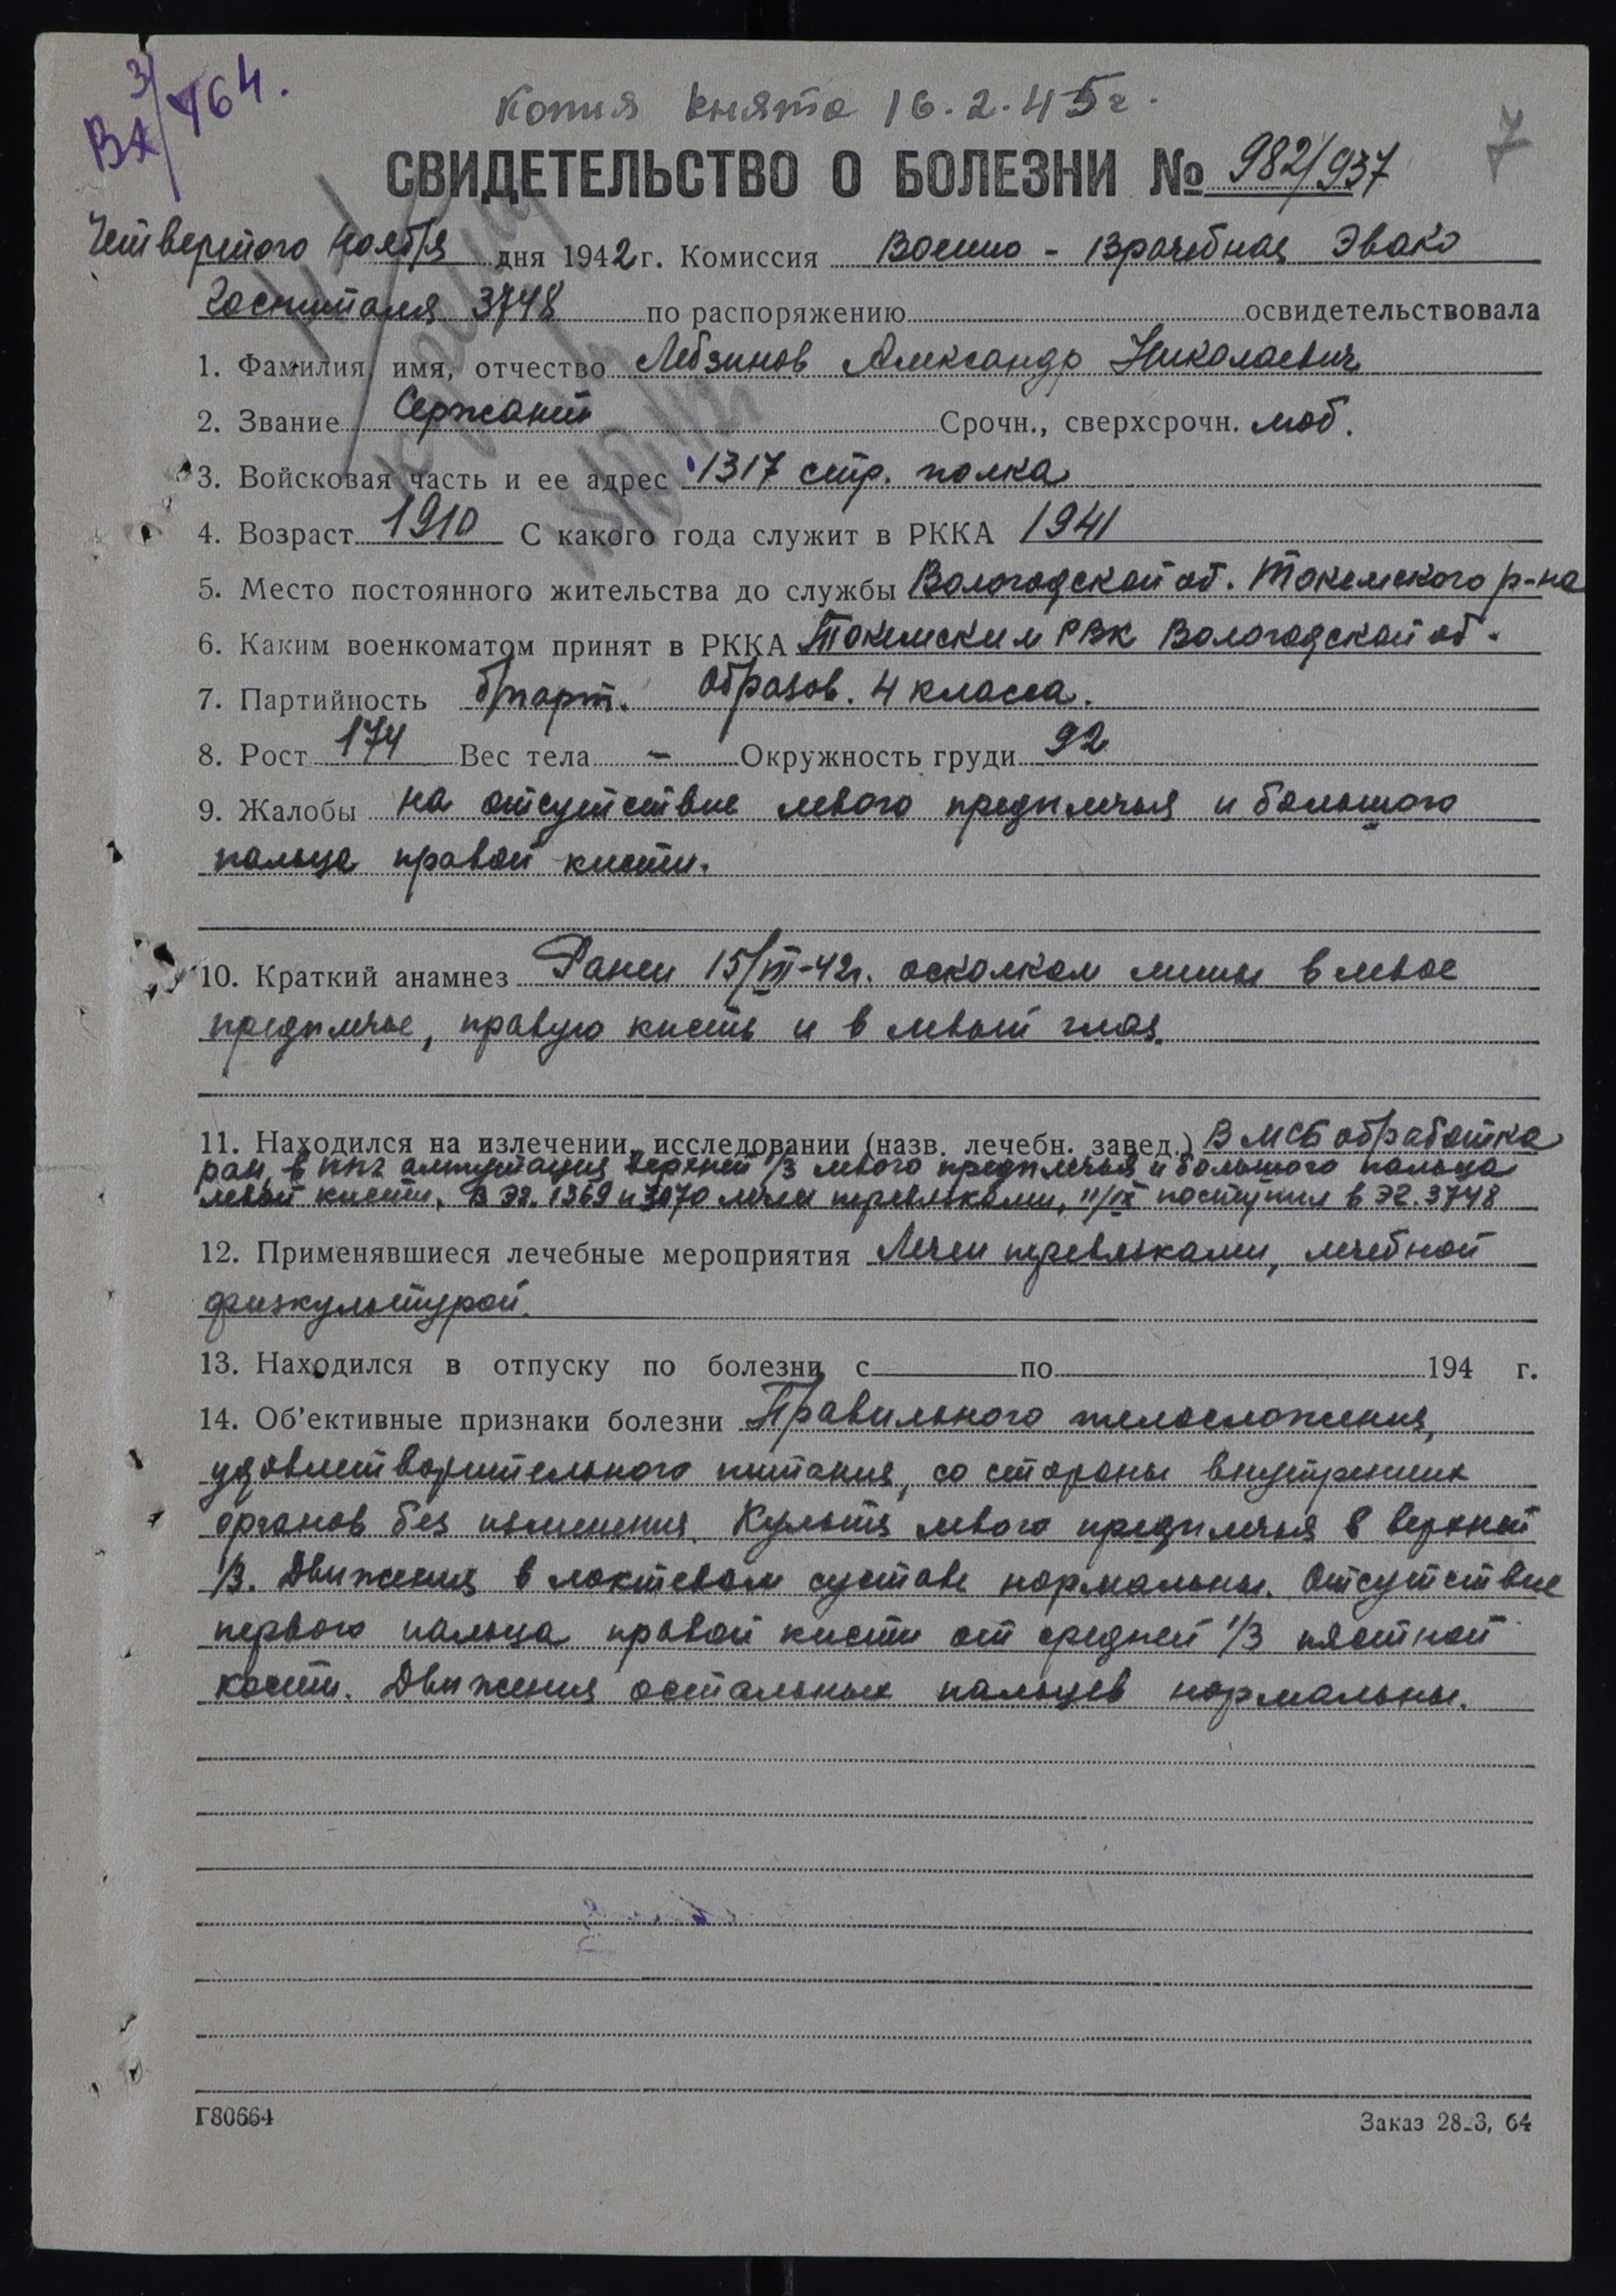 Вх 3/764.
Копия снята 16.2.45г.
7
СВИДЕТЕЛЬСТВО О БОЛЕЗНИ № 982/937
Четвертого ноября дня 1942 г. Комиссия Военно-Врачебная Эвако
Госпиталя 3748 по распоряжению освидетельствовала
1. Фамилия, имя, отчество Лебзинов Александр Николаевич
2. Звание Сержант Срочн., сверхсрочн. моб.
3. Войсковая часть и ее адрес 1317 стр. полка
4. Возраст 1910 С какого года служит в РККА 1941
5. Место постоянного жительства до службы Вологодской об. Токемского р-на
6. Каким военкоматом принят в РККА Токемским РВК Вологодской об.
7. Партийность б/парт. Образов. 4 класса.
8. Рост 174 Вес тела – Окружность груди 92
9. Жалобы на отсутствие левого предплечья и большого
пальца правой кисти.
10. Краткий анамнез Ранен 15/III-42г. осколком мины в левое
предплечье, правую кисть и в левый глаз.
11. Находился на излечении, исследовании (назв. лечебн. завед.) В МСБ обработка
ран, в ППГ ампутация верхней 1/3 левого предплечья и большого пальца
левой кисти. В ЭГ. 1269 и 3070 лечен перевязками, 11/IX поступил в ЭГ. 3748
12. Применявшиеся лечебные мероприятия Лечен перевязками, лечебной
физкультурой.
13. Находился в отпуску по болезни с по 194 г.
14. Об'ективные признаки болезни Правильного телосложения,
удовлетворительного питания, со стороны внутренних
органов без изменения. Культя левого предплечья в верхней
1/3. Движения в локтевом суставе нормальны. Отсутствие
первого пальца правой кисти от средней 1/3 пястной
кости. Движения остальных пальцев нормальны.
Г80664 Заказ 28_3, 64